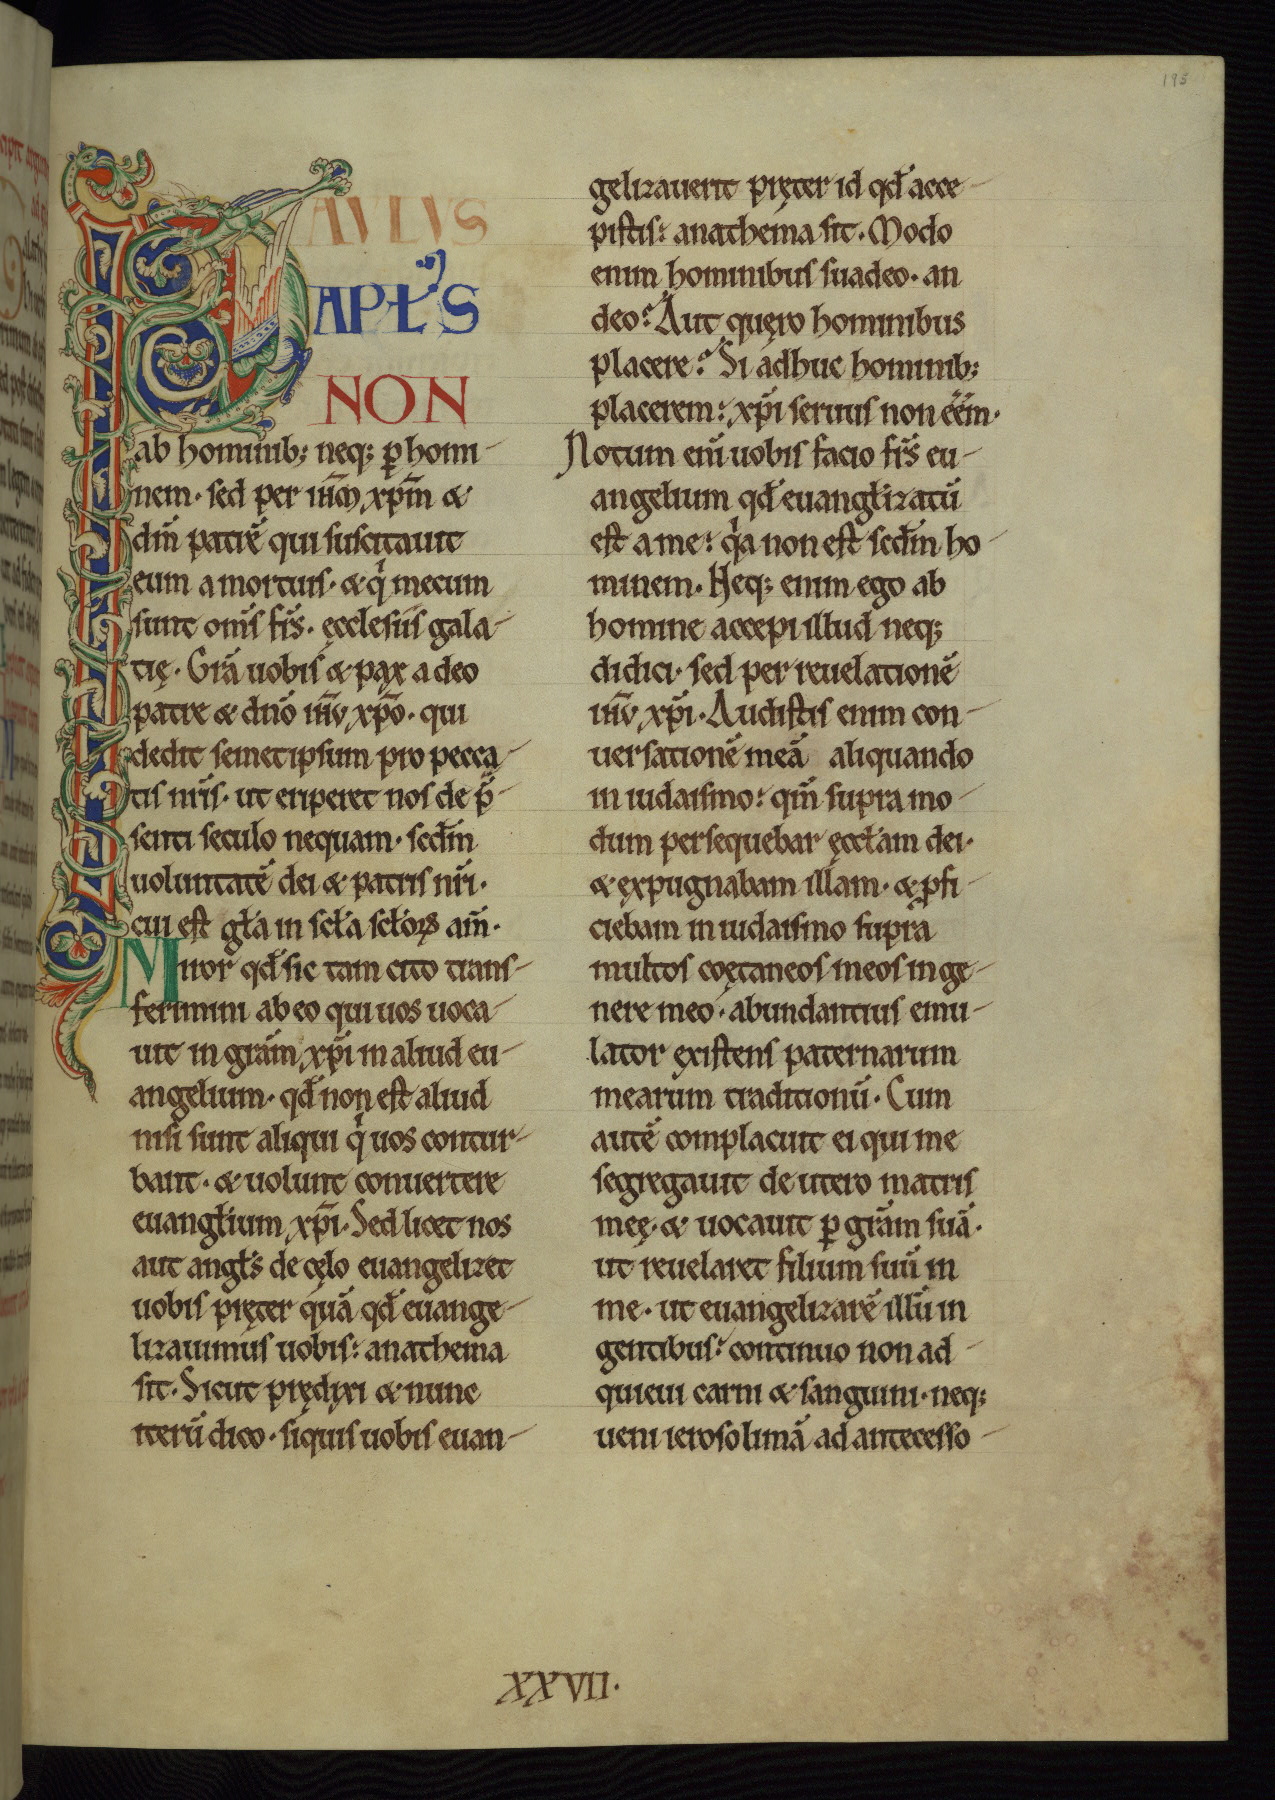 195
PAULUS
APŁ'S
NON
ab hominib; neq; ꝑ homi-
nem· sed per ih̅m xp̅m &
dm̅ patrē qui suscitauit
eum a mortuis· & qⁱ mecum
sunt om̅s fr̅s· ęcclesiis gala-
tię· Gr̅a uobis & pax a deo
patre & dn̅o ih̅u xp̅o· qui
dedit semetipsum pro pecca-
tis nr̅is· ut eriperet nos de p̄-
senti seculo nequam· scd̅m
uoluntatē dei & patris nr̅i·
cui est gł'a in scł'a scł'oꝝ am̅·
Miror qđ sic tam cito trans-
ferimini ab eo qui uos uoca-
uit in gr̅am xp̅i in aliud eu-
angelium· qđ non est aliud
nisi sunt aliqui qⁱ uos contur-
bant· & uolunt conuertere
euangłium xp̅i· Sed licet nos
aut angł's de cęlo euangelizet
uobis pręter quā qđ euange-
lizauimus uobis: anathema
sit· Sicut prędixi & nunc
iterū dico· siquis uobis euan-
gelizauerit pręter id qđ acce-
pistis: anathema sit· Modo
enim hominibus suadeo· an
deo? Aut quęro hominibus
placere? Si adhuc hominib;
placerem: xp̅i seruus non eēm·
Notum eni̅ uobis facio fr̅s eu-
angelium qđ euangłizatū
est a me: qⁱa non est scd̅m ho-
minem· Neq; enim ego ab
homine accepi illud neq;
didici· sed per reuelationē
ih̅u xp̅i· Audistis enim con-
uersationē meā aliquando
in iudaismo: qm̅ supra mo-
dum persequebar ęccłam dei·
& expugnabam illam· & ꝓfi-
ciebam in iudaismo supra
multos coętaneos meos in ge-
nere meo· abundantius emu-
lator existens paternarum
mearum traditionū· Cum
autē complacuit ei qui me
segregauit de utero matris
meę· & uocauit ꝑ gr̅am suā·
ut reuelaret filium suū in
me· ut euangelizarē illū in
gentibus: continuo non ad-
quieui carni & sanguini· neq;
ueni ierosolimā ad antecesso-
XXVII·